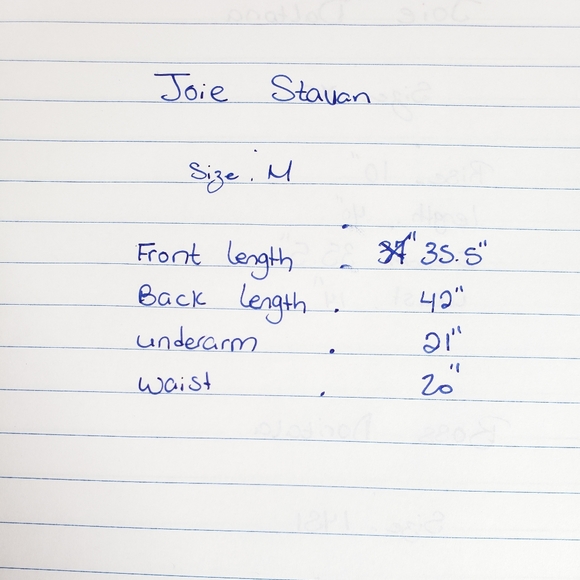 Joie Stavan
Size: M
Front length : 35.5"
Back length . 42"
underarm . 21"
waist . 20"